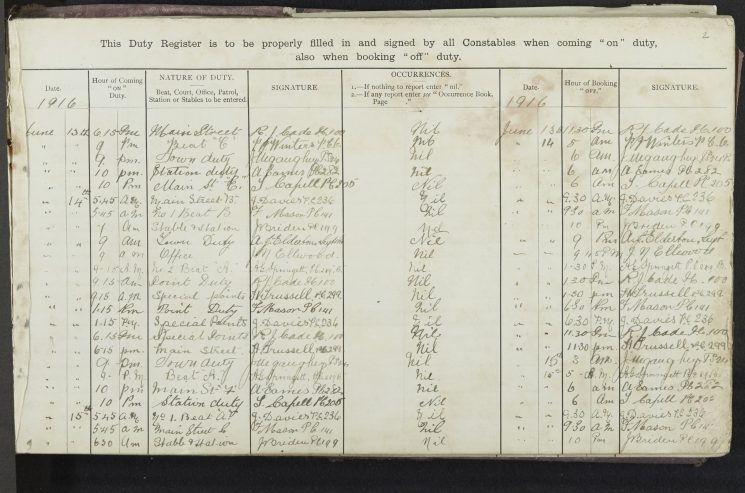 2
This Duty Register is to be properly filled in and signed by all Constables when coming "on" duty,
also when booking "off" duty.
Date. Hour of Coming "ON" Duty. NATURE OF DUTY. Beat, Court, Office, Patrol, Station or Stables to be entered. SIGNATURE. OCCURRENCES. 1.—If nothing to report enter "nil." 2.—If any report enter see "Occurrence Book, Page ." Date. Hour of Booking "OFF." SIGNATURE.
1916 1916
June 13th 6.15 Pm Main Street R J Cade Pc 100 Nil June 13th 11.30 Pm R J Cade Pc 100
" " 9 Pm Beat "C" Nil " 14 5 am
" " 9 pm Town duty nil " " 6 Am
" " 10 pm Station duty A Eames Pc 282 nil " " 6 am A Eames Pc 282
" " 10 Pm Main St C. S Capell Pc 206 Nil " " 6 Am S Capell Pc 206
" 14th 5.45 a.m main Street B. J. Davies Pc 236 Nil " " 9.30 a.m J. Davies Pc 236
" " 5.45 am No 1 Beat B T. Mason Pc 141 Nil " " 9.30 am T. Mason Pc 141
" " 7 Am Stable & station J Briden Pc 199 Nil " " 10 Pm J Briden Pc 199
" " 9 am Town Duty Nil " " 9 Pm
" " 9 am Office J N Ellwood Nil " " J N Ellwood
" " 9.15 A.M. No 2 Beat A. nil " " 1.30 P.M.
" " 9.15 Am Point Duty R J Cade Pc 100 Nil " " 1.30 Pm R J Cade Pc 100
" " 9.15 a.m Special points H Brussell Pc 299 Nil " " 1.30 pm H Brussell Pc 299
" " 1.15 Pm Point Duty T. Mason Pc 141 Nil " " 6.30 Pm T. Mason Pc 141
" " 1.15 P.m. Special Points J. Davies Pc 236 Nil " " 6.30 P.m. J. Davies Pc 236
" " 6.15 Pm Special Points R J Cade Pc 100 Nil " " 11.30 Pm R J Cade Pc 100
" " 6.15 pm main Street H Brussell Pc 299 Nil " " 11.30 pm H Brussell Pc 299
" " 9 pm Town duty nil " 15th
" " 9 P.M. Beat A nil " 15th 5
" " 10 pm main St A Eames Pc 282 nil " " 6 am A Eames Pc 282
" " 10 Pm Station duty S Capell Pc 206 Nil " " 6 Am S Capell Pc 206
" 15th 5.45 a.m No 1. Beat J. Davies Pc 236 Nil " " 9.30 a.m. J. Davies Pc 236
" " 5.45 am Main Street C T. Mason Pc 141 Nil " " 9.30 am T. Mason Pc 141
" " 6.30 Am Stable & station J Briden Pc 199 Nil " " 10 Pm J Briden Pc 199